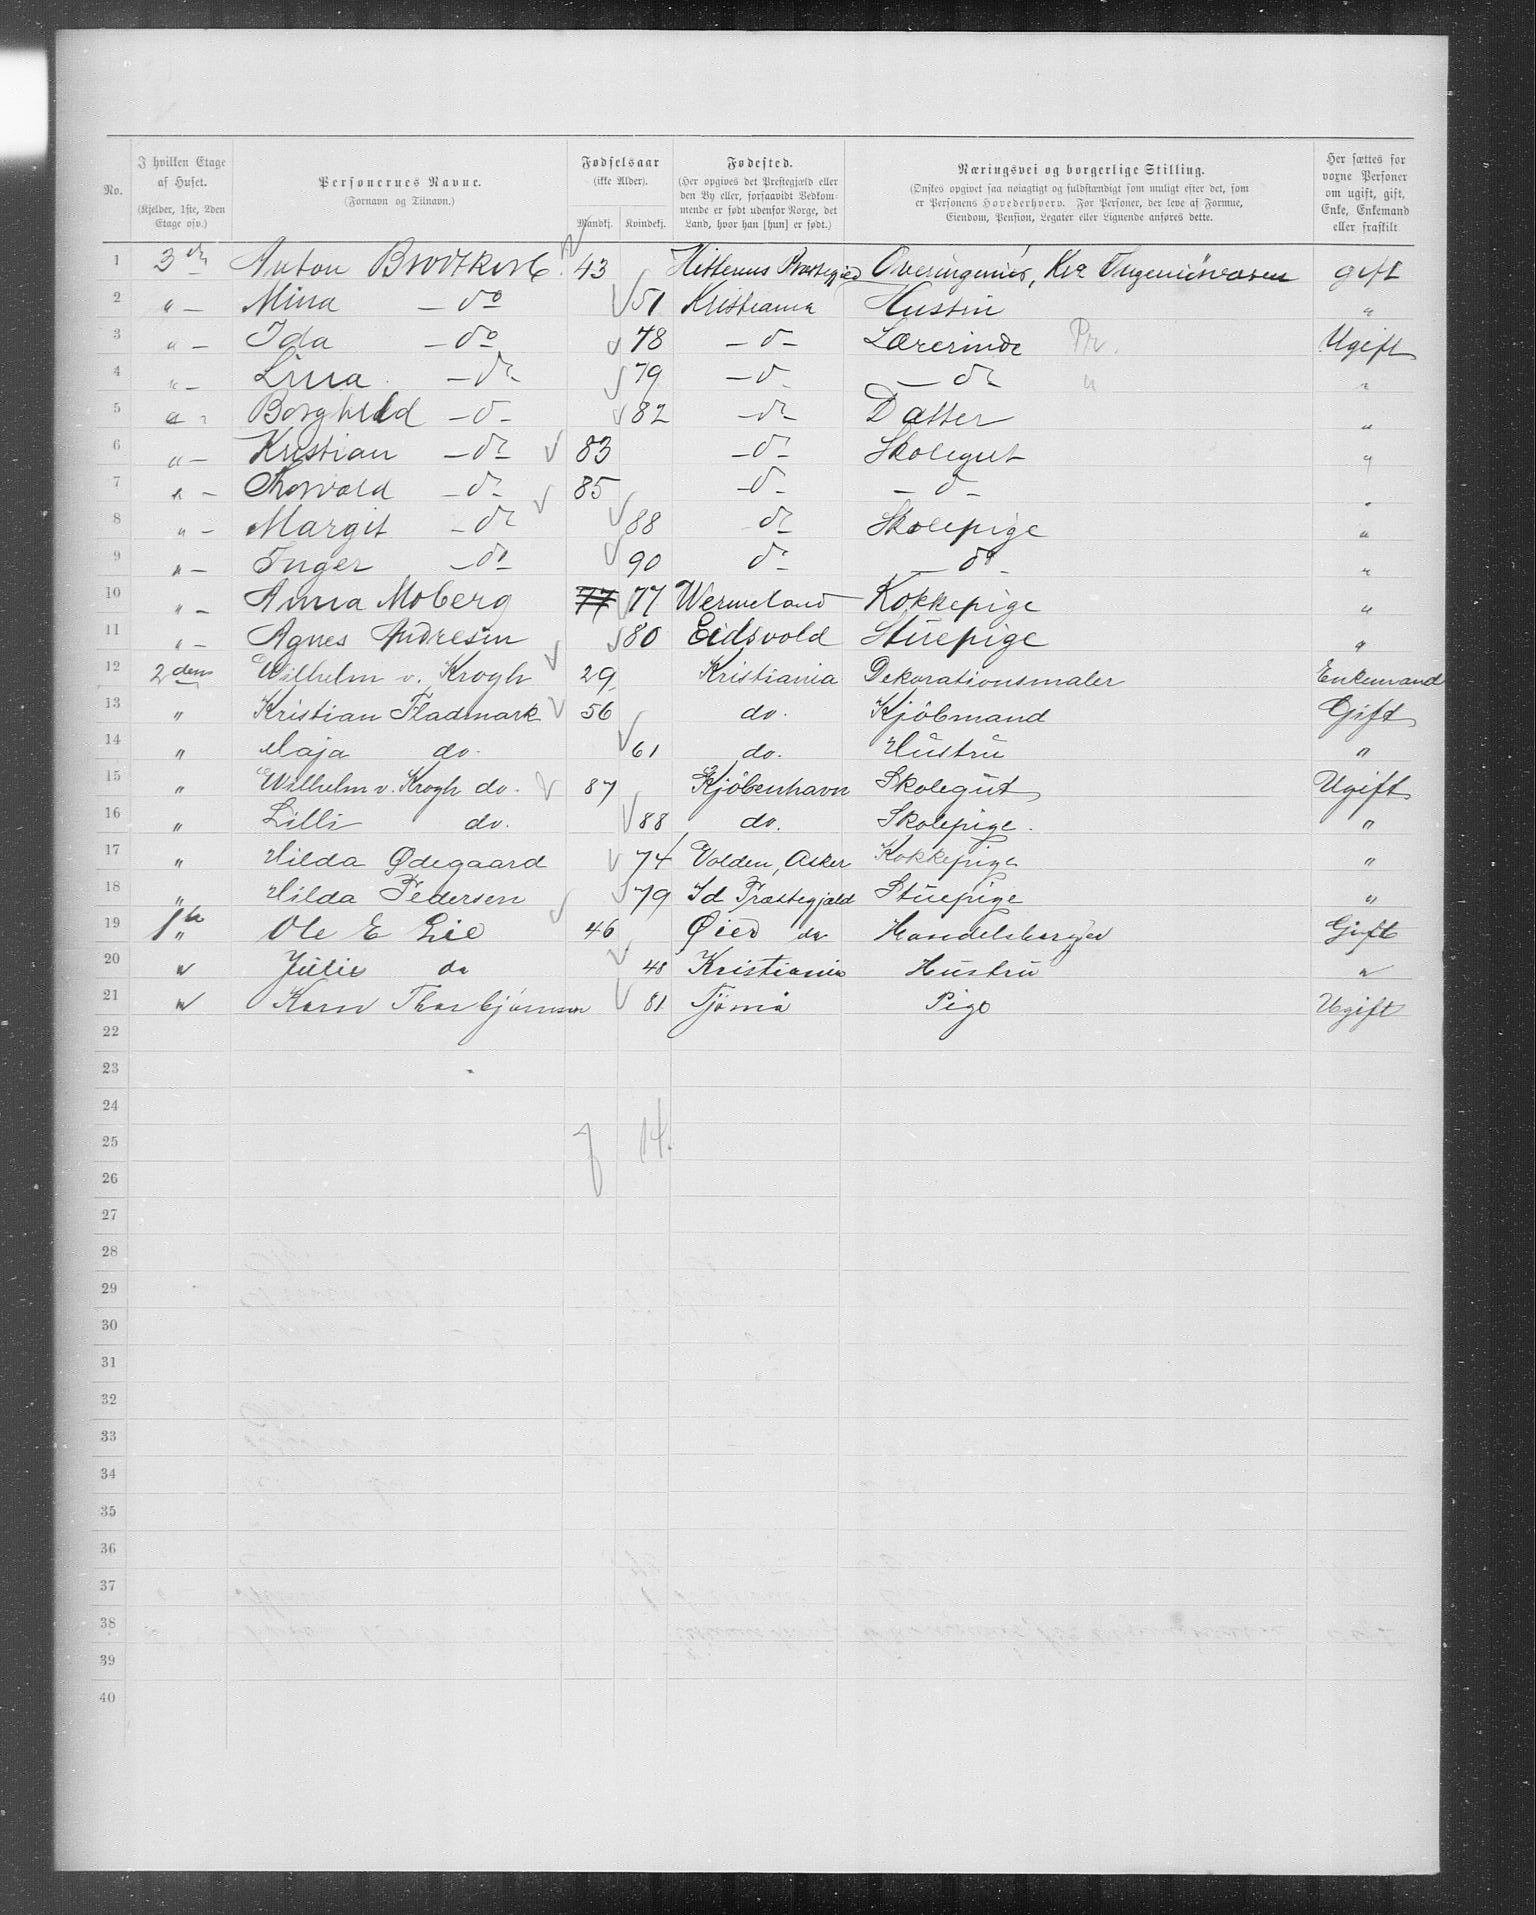 No. | I hvilken Etage af Huset. (Kjelder, 1ste, 2den Etage osv.) | Personernes Navne. (Fornavn og Tilnavn.) | Fødselsaar (ikke Alder). Mandkj. | Kvindekj. | Fødested. (Her opgives det Prestegjæld eller den By eller, forsaavidt Vedkommende er født udenfor Norge, det Land, hvor han [hun] er født.) | Næringsvei og borgerlige Stilling. (Ønskes opgivet saa nøiagtigt og fuldstændigt som muligt efter det, som er Personens Hovederhverv. For Personer, der leve af Formue, Eiendom, Pension, Legater eller Lignende anføres dette. | Her sættes for voxne Personer om ugift, gift, Enke, Enkemand eller fraskilt
1 | 3 | Anton Brodtkorb | 43 | | Hitterns Prestegjed | Overingeniør, | gift
2 | " — | Mina — do | | 51 | Kristiania | Hustru | "
3 | " — | Ida — do | | 78 | — d — | Lærerinde Pr. | Ugift
4 | " — | Lina — do | | 79 | — d — | — do " | "
5 | " - | Borghild — d - | | 82 | — do | Datter | "
6 | " — | Kristian — do | 83 | | — do | Skolegut | "
7 | " — | Thorvald — d - | 85 | | — d - | — d — | "
8 | " — | Margit — do | | 88 | do | Skolepige | "
9 | " — | Inger — do | | 90 | do | — do - | "
10 | " — | Anna Moberg | 77 | 77 | Wermeland | Kokkepige | "
11 | " — | Agnes Andresen | | 80 | Eidsvold | Stuepige | "
12 | 2den | Wilhelm v. Krogh | 29 | | Kristiania | Dekorationsmaler | Enkemand
13 | " | Kristian Fladmark | 56 | | do. | Kjöbmand | Gift
14 | " | Maja do. | | 61 | do. | Hustru | "
15 | " | Wilhelm v. Krogh do. | 87 | | Kjöbenhavn | Skolegut | Ugift
16 | " | Lilli do. | | 88 | do. | Skolepige. | "
17 | " | Hilda Ødegaard | | 74 | Volden, Asker | Kokkepige | "
18 | " | Hilda Pedersen | | 79 | Id Præstegjæld | Stuepige | "
19 | 1ste " | Ole E Lie | 46 | | Øier do | Handelsborger | Gift
20 | " | Julie do | | 48 | Kristiania | Hustru | "
21 | " | Karn Thorbjørnsen | | 81 | Tjömö | Pige | Ugift
22
23
24
25 | 7 | 14.
26
27
28
29
30
31
32
33
34
35
36
37
38
39
40